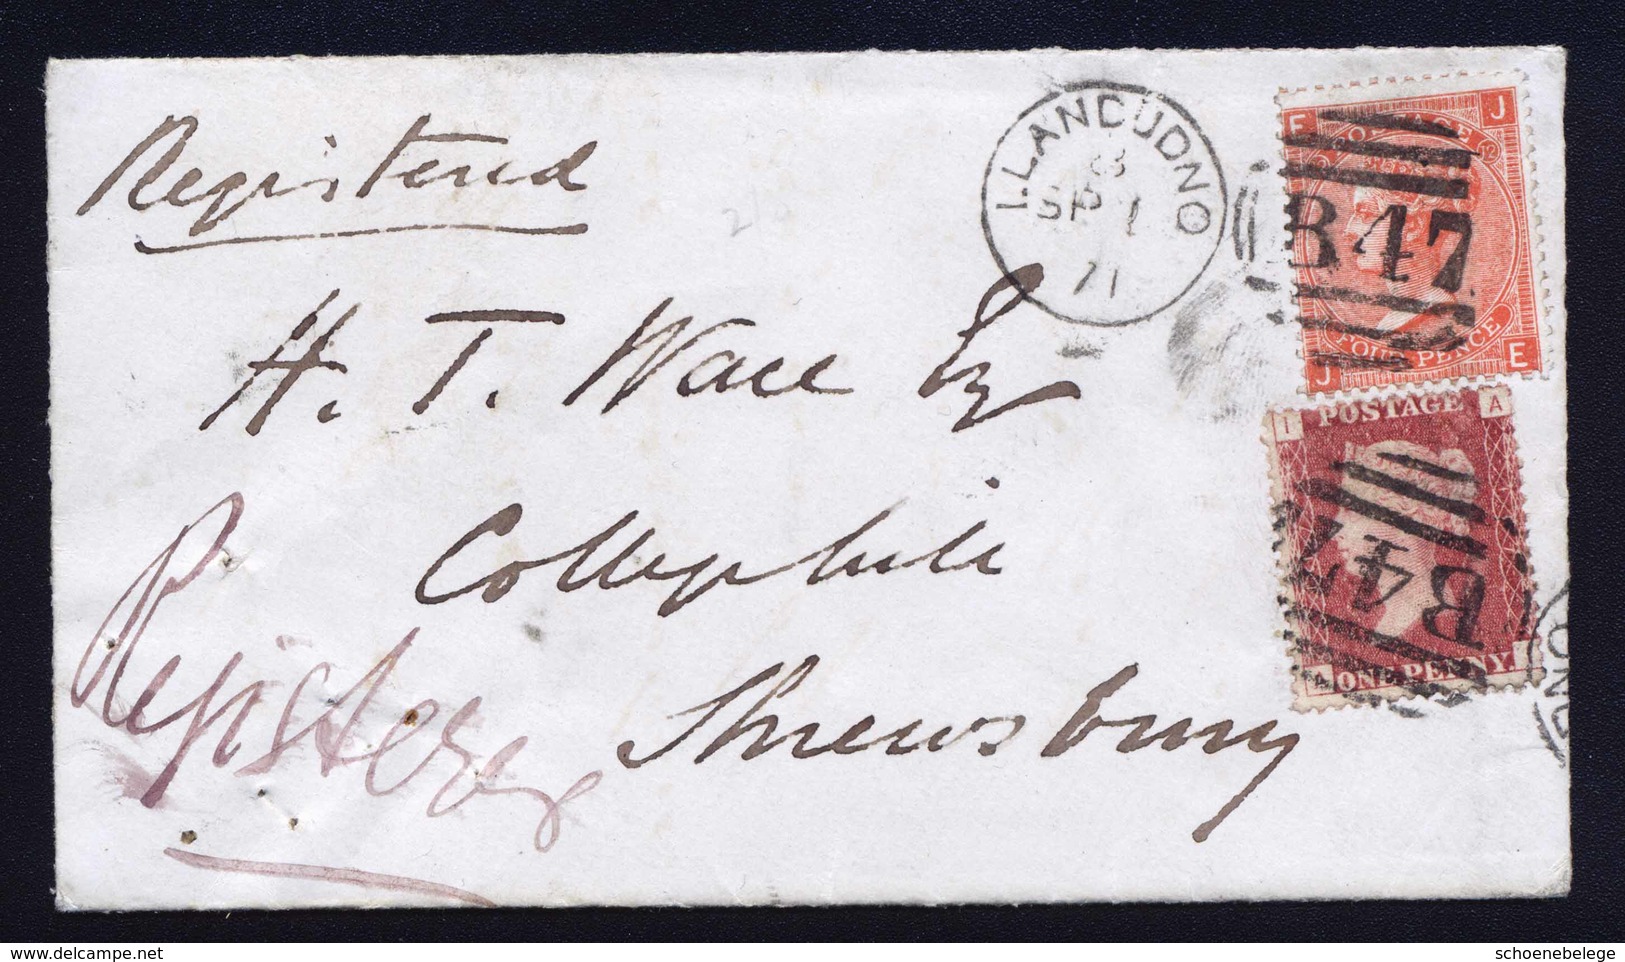 Registered
H. T. Wace Esq
College hill
Shrewsbury
Registered
LLANDUDNO
SP 1
71
E J
POSTAGE
12
B47
FOUR PENCE
J E
I A
POSTAGE
B47
ONE PENNY
A I
delcampe.net
schoenebelege